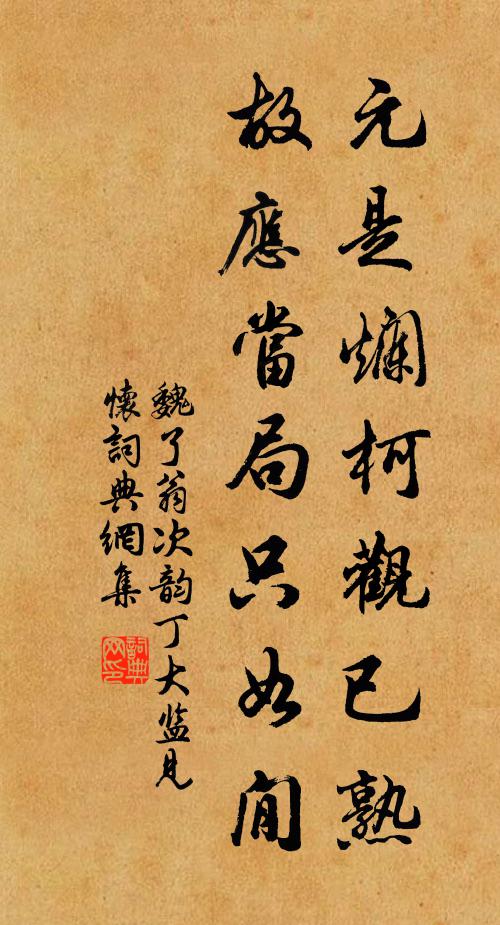 元是爛柯觀已熟
故應當局只如閒
魏了翁次韵丁大监見
懷詞典網集
詞典网印